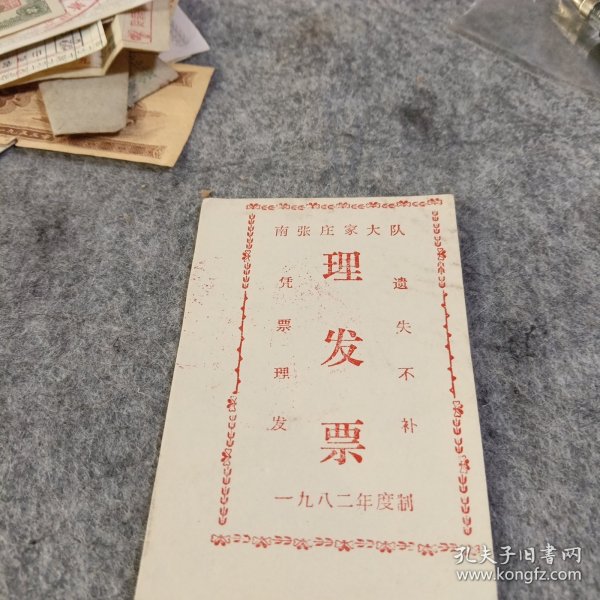 南张庄家大队
理发票
凭票理发
遗失不补
一九八二年度制
孔夫子旧书网
www.kongfz.com